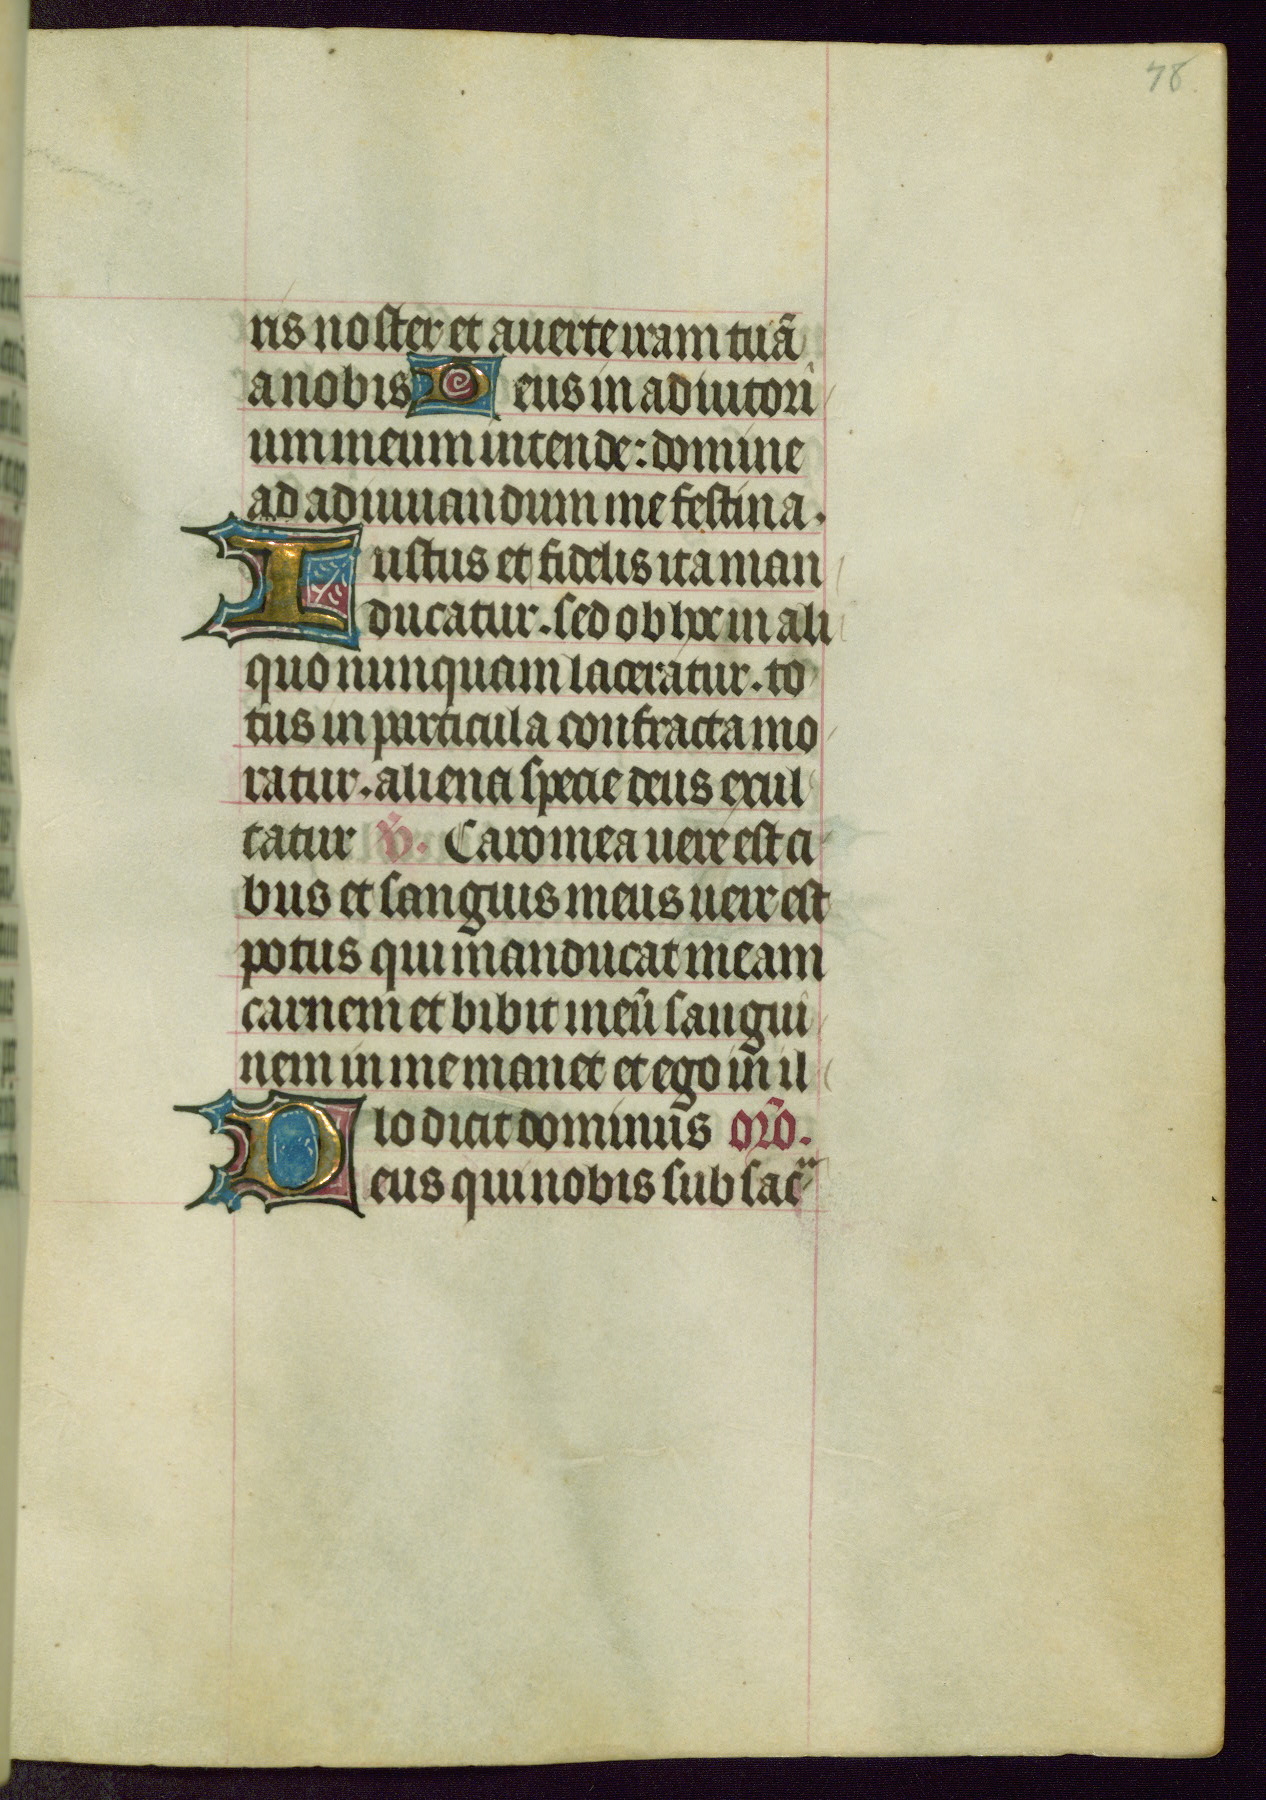 78.
ris noster et auerte iram tuā
a nobis Deus in adiutori
um meum intende: domine
ad adiuuandum me festina.
Iustus et fidelis ita man
ducatur. sed ob hoc in ali
quo nunquam laceratur. to
tus in particula confracta mo
ratur. aliena specie deus exul
tatur v̄. Caro mea uere est ci
bus et sanguis meus uere est
potus qui manducat meam
carnem et bibit meū sangui
nem in me manet et ego in il
lo dicit dominus orō.
Deus qui nobis sub sac̄